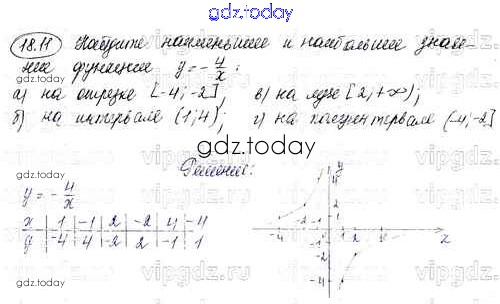 gdz.today
18.11 Найдите наименьшее и наибольшее значе-
ние функции y = -4/x :
а) на отрезке [-4; -2]; в) на луче [2; +∞);
б) на интервале (1; 4); г) на полуинтервале (-4; -2]
gdz.today
Решение:
y = -4/x
x 1 -1 2 -2 4 -4
y -4 4 -2 2 -1 1
y
4
2
1
-4 -2 -1 1 2 x
-1
-2
-4
vipgdz.ru
gdz.today